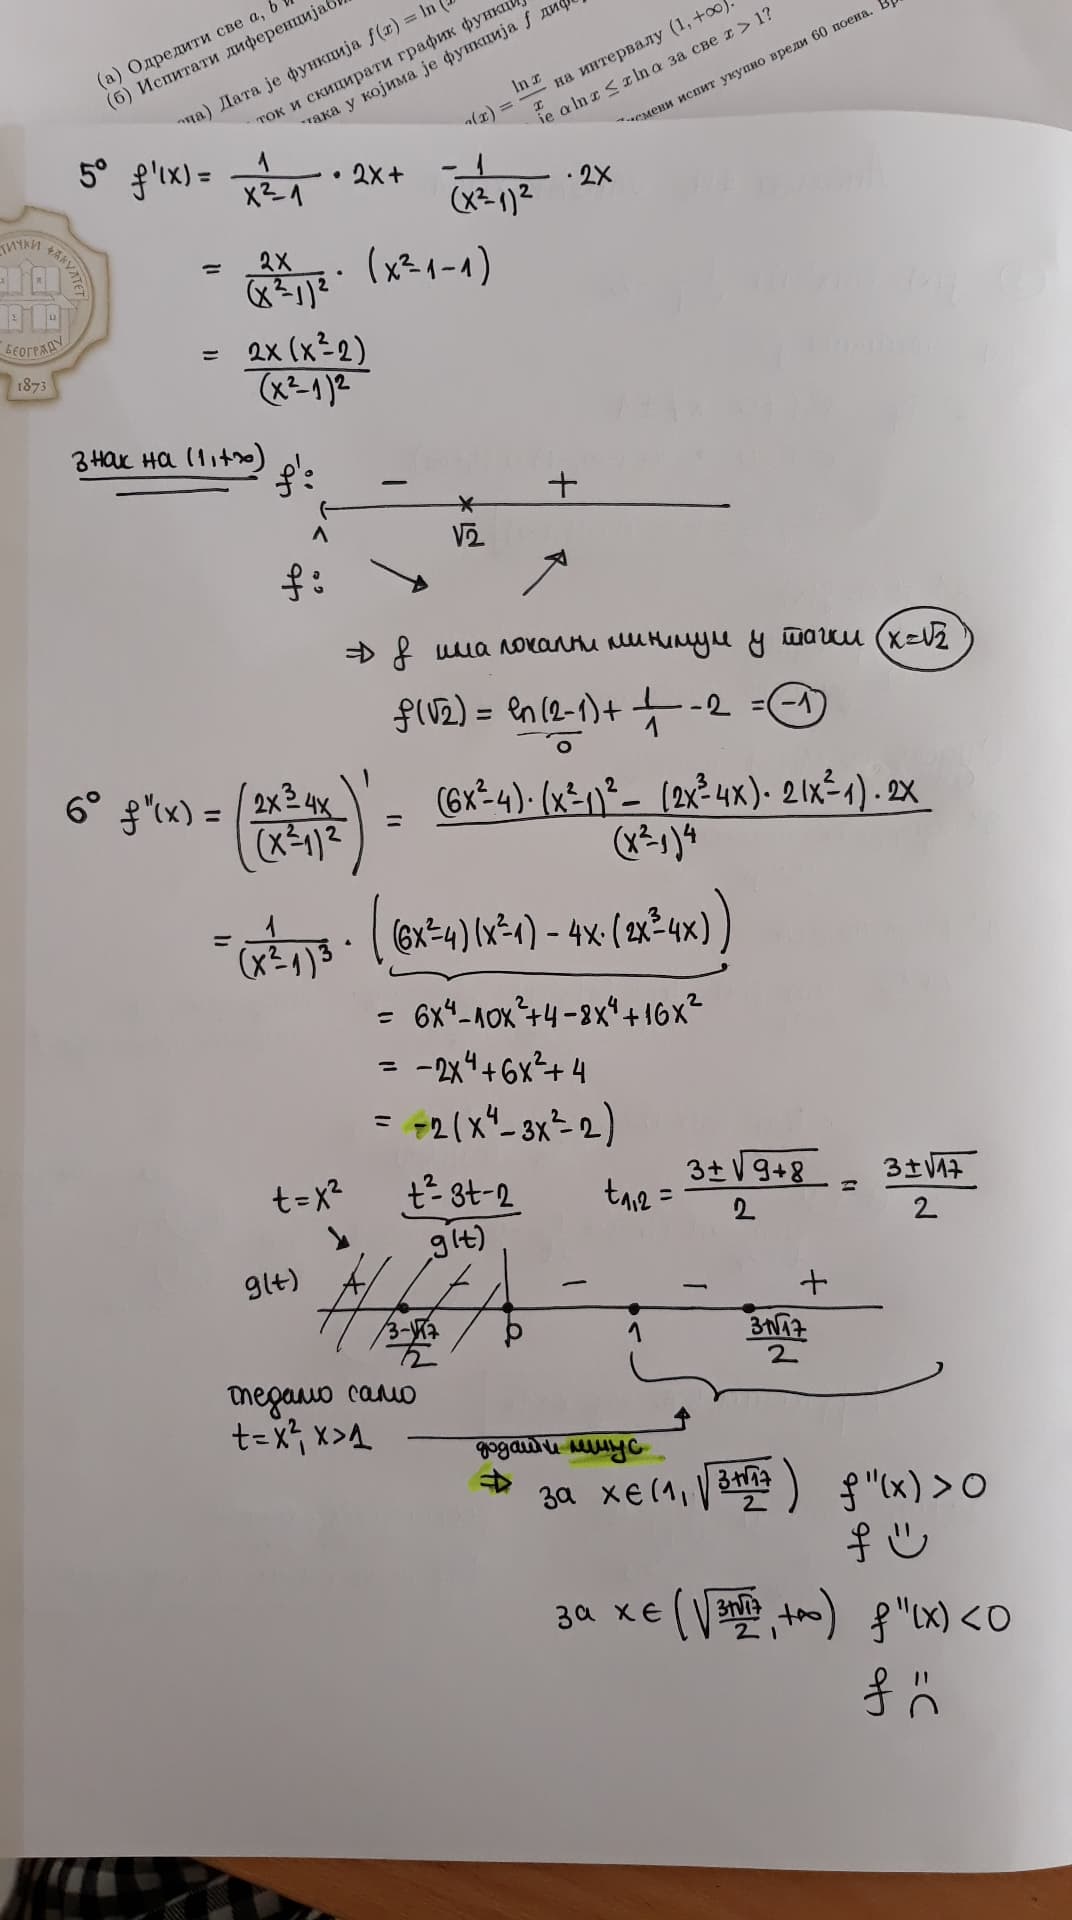 (а) Одредити све a, b
(б) Испитати
Дата је функција f(x) = ln
ток и скицирати график
у којима је функција f
(x) = ln x / x на интервалу (1, +∞).
је α ln x ≤ x ln α за све x > 1?
испит укупно вреди 60 поена.
5° f'(x) = 1/(x²-1) · 2x + -1/(x²-1)² · 2x
= 2x/(x²-1)² · (x²-1-1)
= 2x(x²-2)/(x²-1)²
БЕОГРАДУ
1873
Знак на (1,+∞) f': - +
1 √2
f: ↘ ↗
⇒ f има локални минимум у тачки x=√2
f(√2) = ln(2-1) + 1/1 - 2 = -1
0
6° f''(x) = ((2x³-4x)/(x²-1)²)' = ((6x²-4)·(x²-1)² - (2x³-4x)·2(x²-1)·2x)/(x²-1)⁴
= 1/(x²-1)³ · ((6x²-4)(x²-1) - 4x·(2x³-4x))
= 6x⁴-10x²+4-8x⁴+16x²
= -2x⁴+6x²+4
= -2(x⁴-3x²-2)
t=x² t²-3t-2 t₁,₂ = (3±√(9+8))/2 = (3±√17)/2
g(t)
g(t) + - - - +
(3-√17)/2 0 1 (3+√17)/2
гледамо само
t=x², x>1
додати минус
⇒ за x∈(1, √((3+√17)/2)) f''(x)>0
f
за x∈(√((3+√17)/2), +∞) f''(x)<0
f